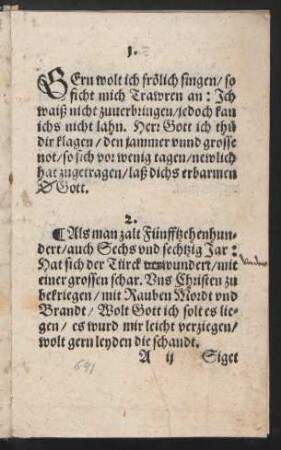 1.
GErn wolt ich frölich singen/ so
sicht mich Trawren an: Ich
waiß nicht zuuerbringen/ jedoch kan
ichs nicht lahn. Herr Gott ich thů
dir klagen/ den jammer vnnd grosse
not/ so sich vor wenig tagen/ newlich
hat zugetragen/ laß dichs erbarmen
O Gott.
2.
¶ Als man zalt Fünfftzehenhun-
dert/ auch Sechs vnd sechtzig Jar:
Hat sich der Türck verwundert/ mit
einer grossen schar. Vns Christen zu
bekriegen/ mit Rauben Mordt vnd
Brandt/ Wolt Gott ich solt es lie-
gen/ es wurd mir leicht verziegen/
wolt gern leyden die schandt.
A ij Siget